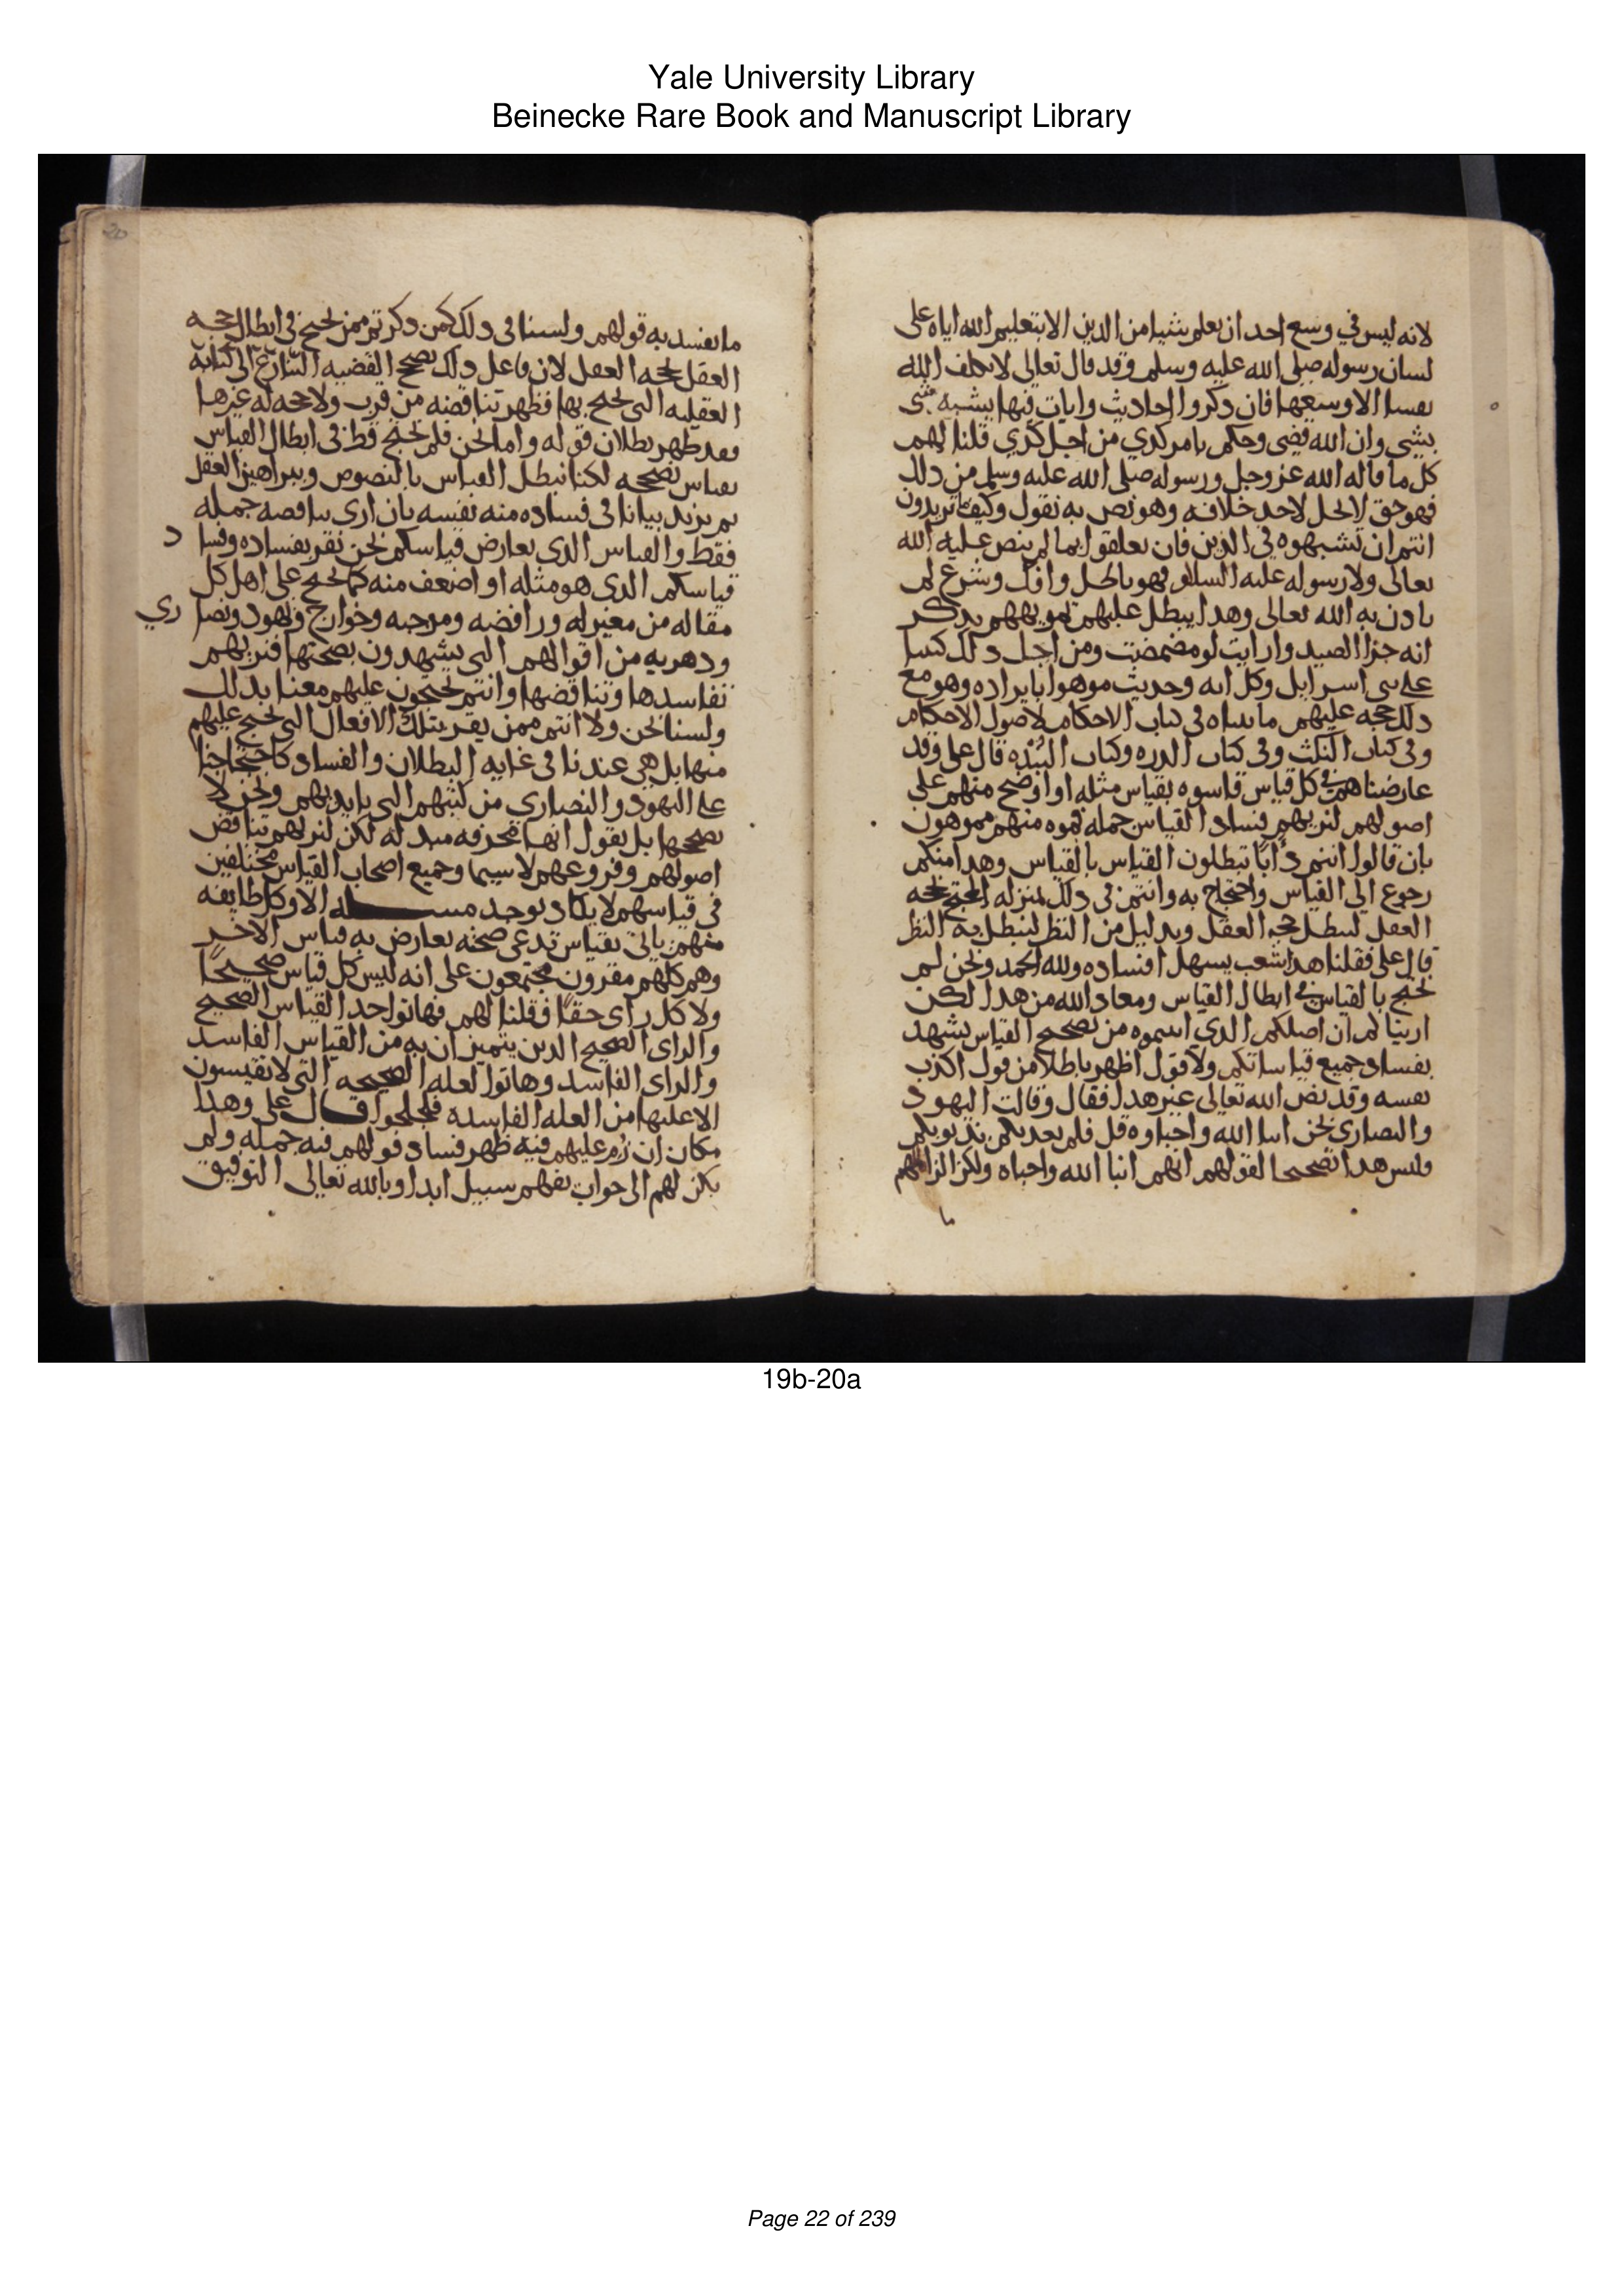 Yale University Library
Beinecke Rare Book and Manuscript Library
لانه ليس في وسع احد ان يعلم شيا من الدين الا بتعليم الله اياه على
لسان رسوله صلى الله عليه وسلم وقد قال تعالى لا يكلف الله
نفسا الا وسعها فان ذكروا احاديث وايات فيها بيشبه شى
بشى وان الله قضى وحكم بامر كدي من اجل كدي قلنا لهم
كل ما قاله الله عز وجل ورسوله صلى الله عليه وسلم من دلك
فهو حق لا يحل لاحد خلافه وهو نص به نقول وكيفما تريدون
انتم ان تشبهوه في الدين فان تعلقوا بما لم ينص عليه الله
تعالى ولا رسوله عليه السلام فهو باطل وافك وشرع لم
يادن به الله تعالى وهدا يبطل عليهم تمويههم بدكر
انه جزا الصيد وارايت لو مضمضت ومن اجل دلك كتبنا
على بني اسرايل وكل ايه وحديث موهوا بايراده وهو مع
دلك حجه عليهم ما بيناه في كتاب الاحكام لاصول الاحكام
وفي كتاب النكت وفي كتاب الدره وكتاب النبذه قال على وقد
عارضناهم في كل قياس قاسوه بقياس مثله او اوضح منه على
اصولهم لنريهم فساد القياس جمله فموه منهم مموهون
بان قالوا انتم دأبا تبطلون القياس بالقياس وهدا منكم
رجوع الى القياس واحتجاج به وانتم في دلك بمنزله المحتج بحجه
العقل ليبطل حجه العقل وبدليل من النظر ليبطل به النظر
قال على فقلنا هدا شعب يسهل افساده ولله الحمد ونحن لم
نحتج بالقياس في ابطال القياس ومعاد الله من هدا لكن
ارينا كم ان اصلكم الدي اثبتموه من تصحيح القياس يشهد
بفساد جميع قياساتكم ولا قول اظهر باطلا من قول اكذب
نفسه وقد نص الله تعالى على هدا فقال وقالت اليهود
والنصاري نحن ابنا الله واحباوه قل فلم يعدبكم بدنوبكم
وليس هدا تصحيحا لقولهم انهم ابنا الله واحباه ولكن الزامهم
ما
20
ما يفسد به قولهم ولسنا في دلك كمن دكرتم ممن يحتج في ابطال حجه
العقل بحجه العقل لان فاعل دلك مصحح القضيه
العقليه التي يحتج بها فظهر تناقضه من قرب ولا حجه له غيرها
فقد ظهر بطلان قوله واما نحن فلم نحتج قط في ابطال القياس
بقياس نصححه لكنا نبطل القياس بالنصوص وببراهين العقل
ثم نزيد بيانا في فساده منه نفسه بان ارى تناقضه جمله
فقط والقياس الدي يعارض قياسكم نحن نقر بفساده وفساد
قياسكم الدى هو مثله او اضعف منه كما نحتج على اهل كل
مقاله من معتزله ورافضه ومرجيه وخوارج ويهود ونصاري
ودهريه من اقوالهم التي يشهدون بصحتها فنريهم
تفاسدها وتناقضها وانتم تحتجون عليهم معنا بدلك
ولسنا نحن ولا انتم ممن يقر بتلك الافعال التي نحتج عليهم
منها بل هي عندنا في غايه البطلان والفساد كاحتجاجنا
على اليهود والنصاري من كتبهم التي بايديهم ونحن لا
نصححها بل نقول انها محرفه مبدله لكن لنريهم تناقض
اصولهم وفروعهم لا سيما وجميع اصحاب القياس مختلفين
في قياسهم لا يكاد يوجد مسله الا وكل طايفه
منهم ياتى بقياس تدعى صحته يعارض به قياس الاخر
وهم كلهم مقرون مجتمعون على انه ليس كل قياس صحيحا
ولا كل راى حقا فقلنا لهم فهاتوا حد القياس الصحيح
والراى الصحيح الدين يتميزان به من القياس الفاسد
والراى الفاسد وهاتوا لعله الصحيحه التى لا تقيسون
الا عليها من العله الفاسده فلجلجوا قال على وهدا
مكان ان زم عليهم فيه ظهر فساد قولهم فيه جمله ولم
يكن لهم الى جواب يفهم سبيل ابدا وبالله تعالى التوفيق
19b-20a
Page 22 of 239